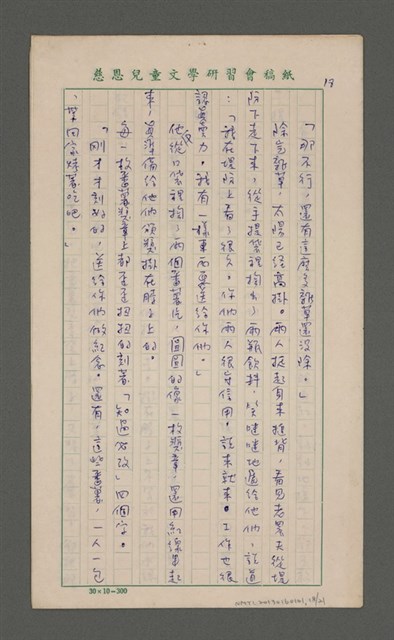 慈恩兒童文學研習會稿紙
19
「那不行，還有這麼多雜草還沒除。」
除完雜草，太陽已經高掛。兩人挺起身來捶背，看見老農夫從堤
防下走下來，從手提袋裡掏出兩瓶飲料，笑嘻嘻地遞給他們，說道
：「我在堤防上看了很久。你們兩人很守信用。說來就來。工作也很
認真賣力。我有一樣東西要送給你們。」
他從口袋裡掏了兩個蕃薯片，圓圓的像一枚獎章，還用紅線串起
來，算準備給他們頒獎掛在脖子上的。
每一枚蕃薯獎章上都歪歪扭扭的刻著「知過必改」四個字。
「剛才才刻好的，送給你們做紀念。還有，這些蕃薯，一人一包
，帶回家烤著吃吧。」
30×10=300